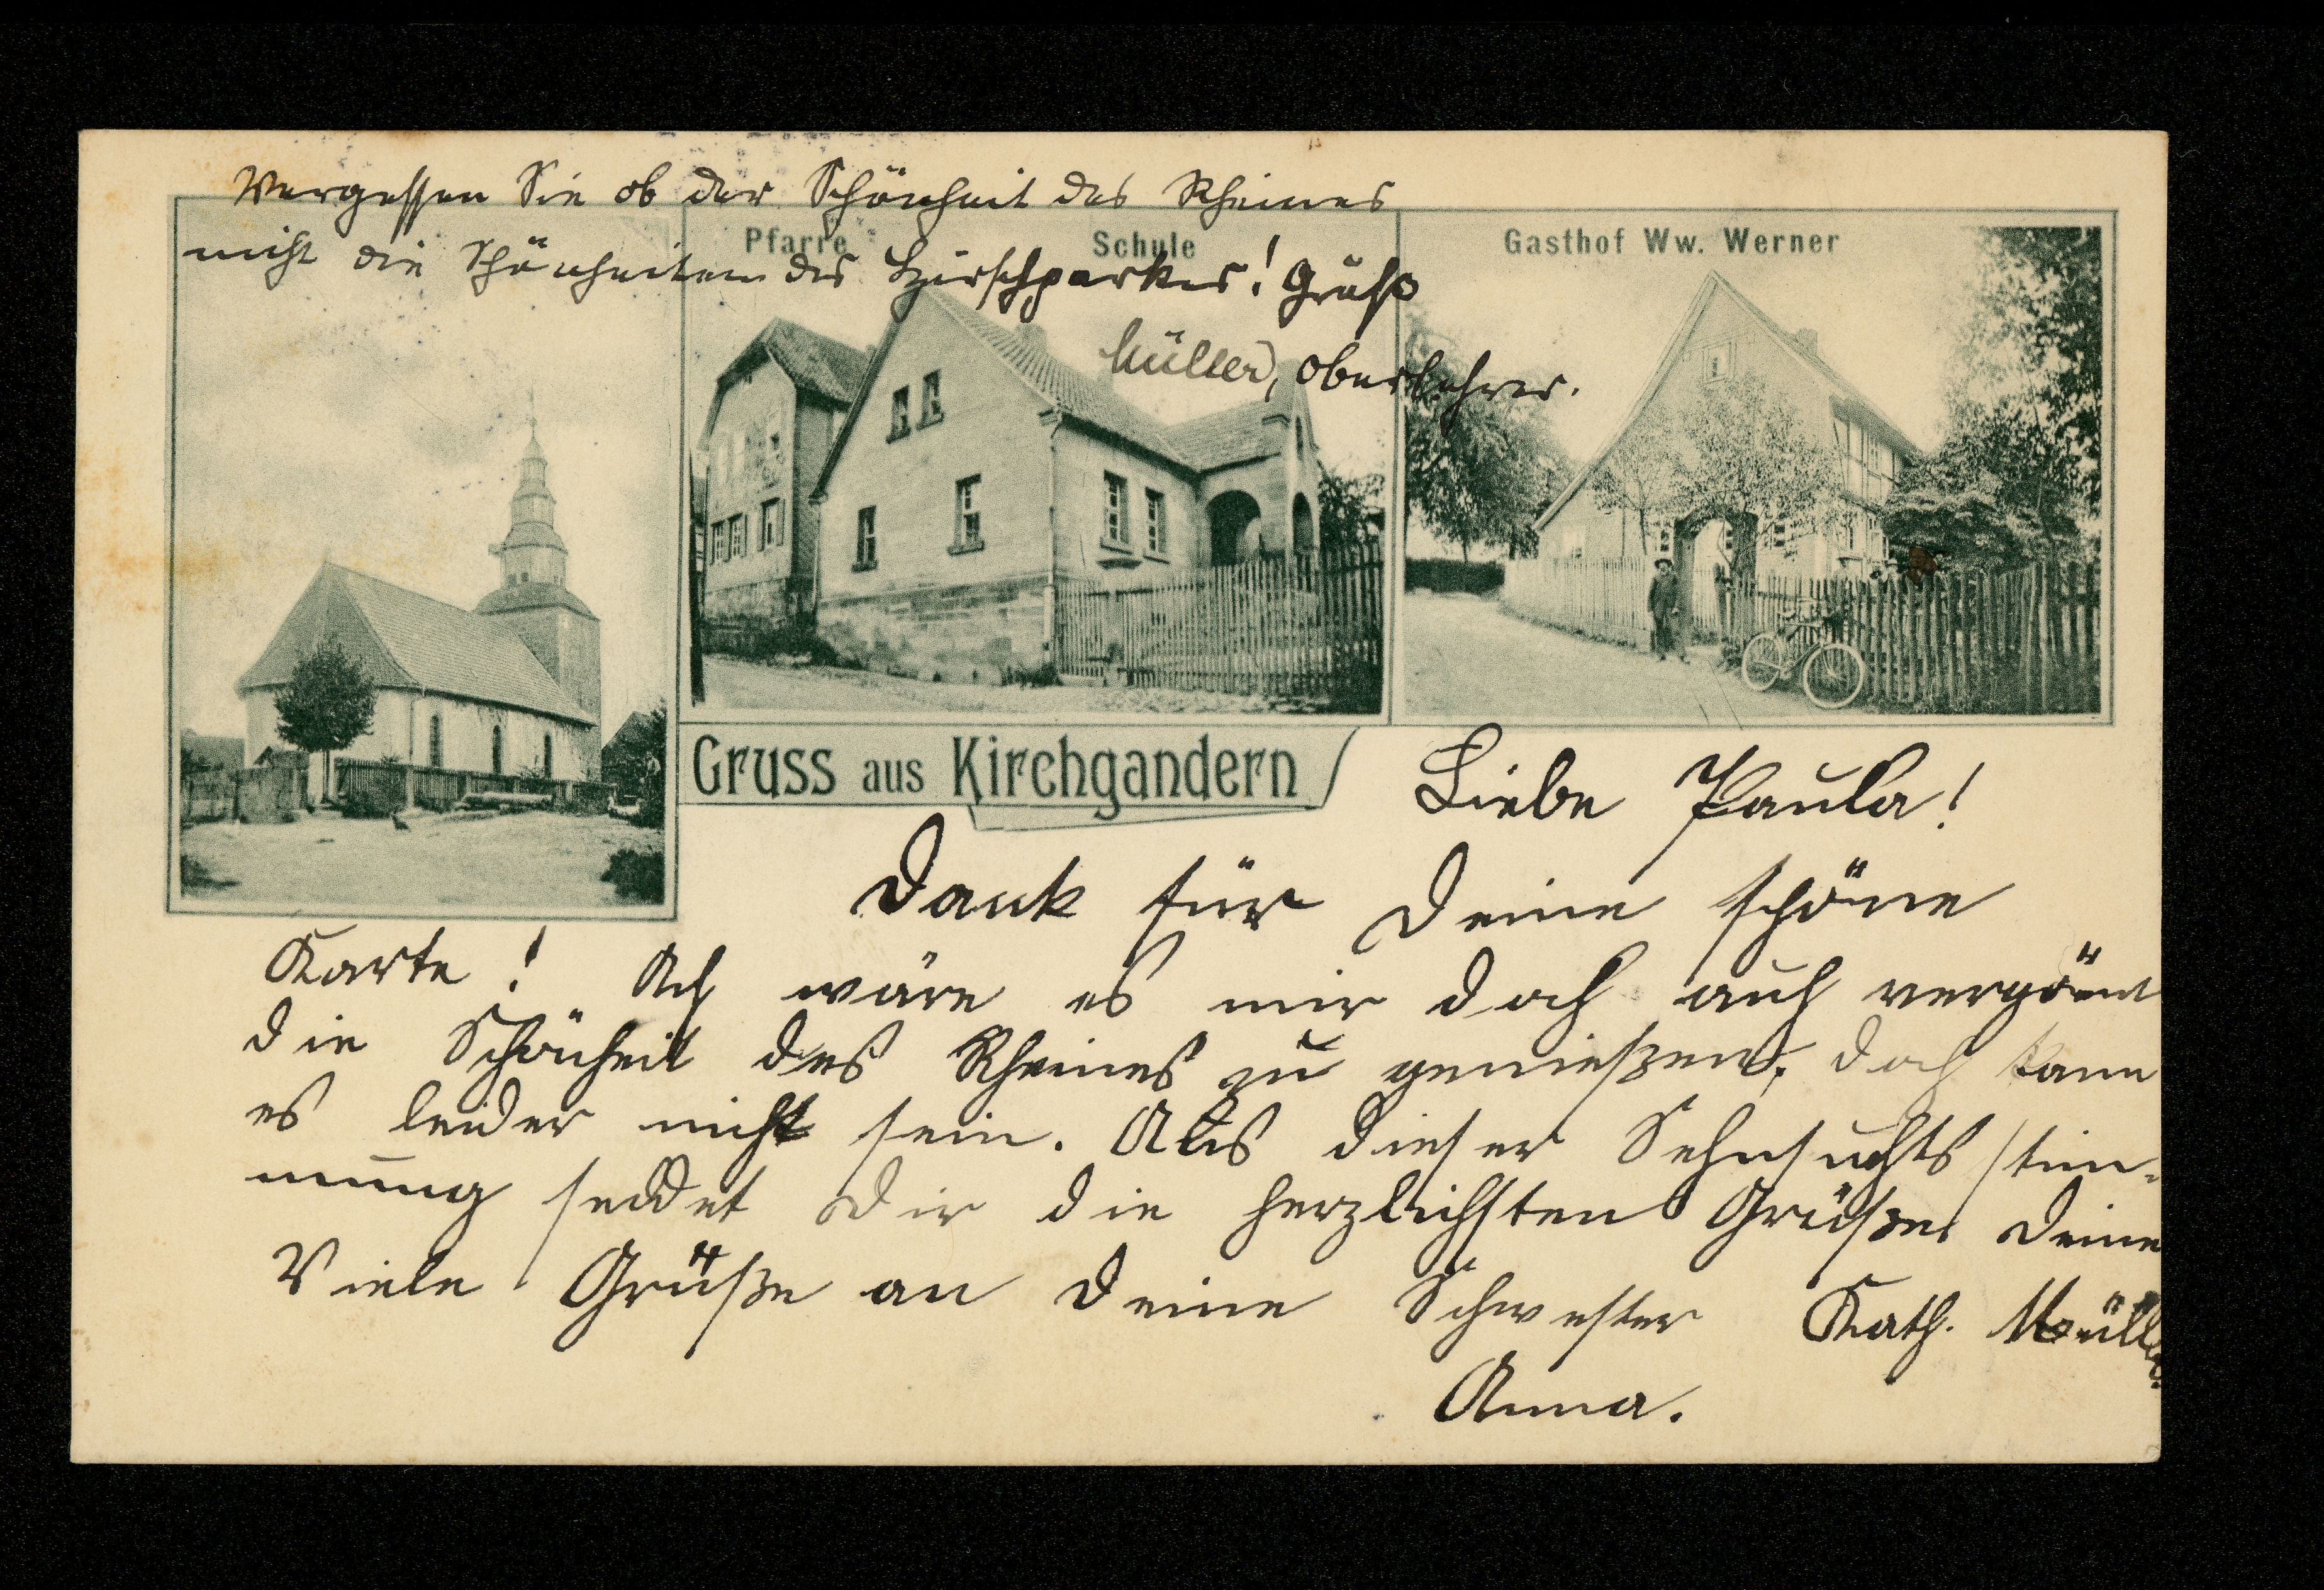 Vergessen Sie ob der Schönheit des Rheines
nicht die Schönheiten des Hirschparkes! Gruß
Müller, Oberlehrer.
Pfarre
Schule
Gasthof Ww. Werner
Gruss aus Kirchgandern
Liebe Paula!
Dank für Deine schöne
Karte! Ach wäre es mir doch auch vergönnt
die Schönheit des Rheines zu genießen, doch kann
es leider nicht sein. Aus dieser Sehnsuchtsstim-
mung sendet Dir die herzlichsten Grüße Deine
Viele Grüße an Deine Schwester Kath. Müller.
Anna.